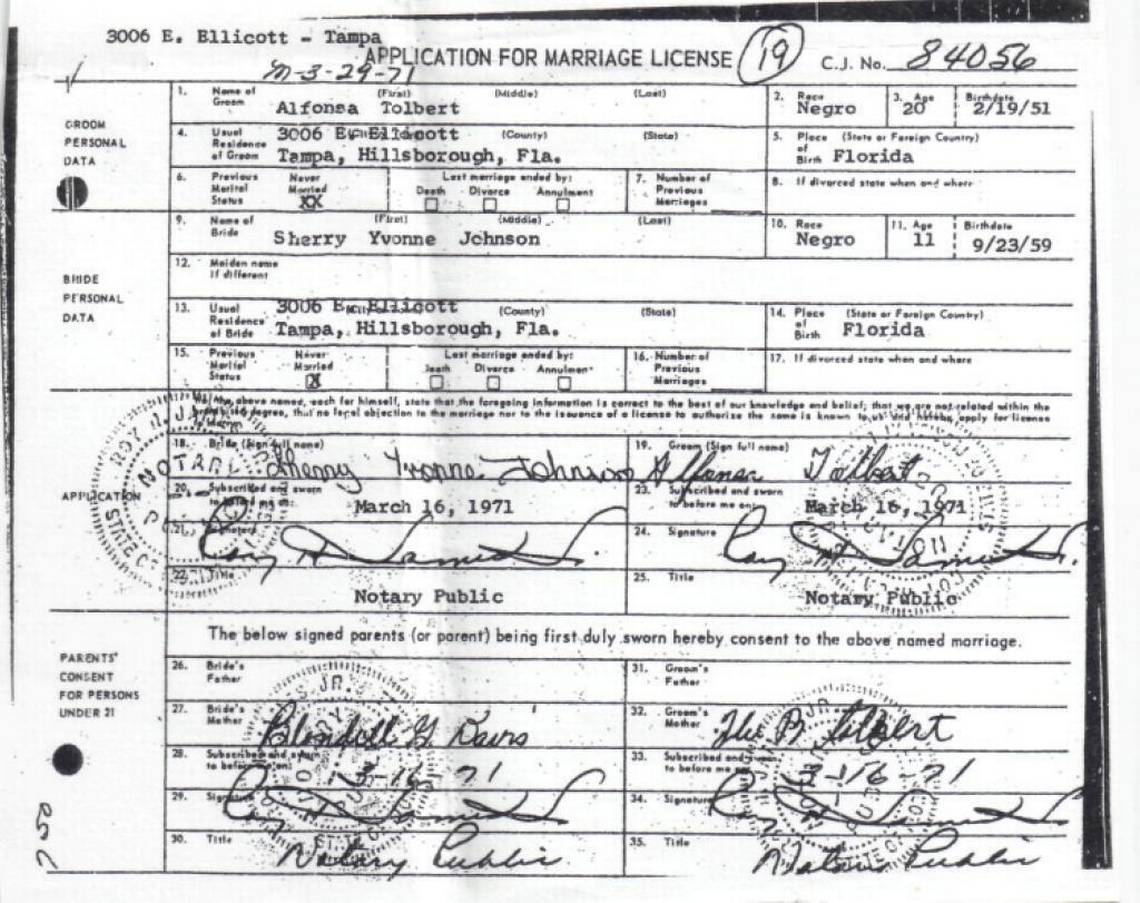 3006 E. Ellicott - Tampa
APPLICATION FOR MARRIAGE LICENSE 19 C.J. No. 84056
M-3-29-71
GROOM PERSONAL DATA
1. Name of Groom (First) (Middle) (Last)
Alfonsa Tolbert
2. Race Negro
3. Age 20
Birthdate 2/19/51
4. Usual Residence of Groom (County) (State)
3006 E. Ellicott
Tampa, Hillsborough, Fla.
5. Place of Birth (State or Foreign Country)
Florida
6. Previous Marital Status Never Married XX
Last marriage ended by: Death Divorce Annulment
7. Number of Previous Marriages
8. If divorced state when and where
BRIDE PERSONAL DATA
9. Name of Bride (First) (Middle) (Last)
Sherry Yvonne Johnson
10. Race Negro
11. Age 11
Birthdate 9/23/59
12. Maiden name if different
13. Usual Residence of Bride (County) (State)
3006 E. Ellicott
Tampa, Hillsborough, Fla.
14. Place of Birth (State or Foreign Country)
Florida
15. Previous Marital Status Never Married X
Last marriage ended by: Death Divorce Annulment
16. Number of Previous Marriages
17. If divorced state when and where
APPLICATION
the above named, each for himself, state that the foregoing information is correct to the best of our knowledge and belief; that we are not related within the
degree, that no legal objection to the marriage nor to the issuance of a license to authorize the same is known to us and hereby apply for license
18. Bride (Sign full name)
Sherry Yvonne Johnson
19. Groom (Sign full name)
Alfonsa Tolbert
20. Subscribed and sworn to before me on:
March 16, 1971
23. Subscribed and sworn to before me on:
March 16, 1971
21. Signature
24. Signature
22. Title
Notary Public
25. Title
Notary Public
The below signed parents (or parent) being first duly sworn hereby consent to the above named marriage.
PARENTS' CONSENT FOR PERSONS UNDER 21
26. Bride's Father
31. Groom's Father
27. Bride's Mother
Blondell G Davis
32. Groom's Mother
Tolbert
28. Subscribed and sworn to before me on:
3-16-71
33. Subscribed and sworn to before me on:
3-16-71
29. Signature
34. Signature
30. Title
Notary Public
35. Title
Notary Public